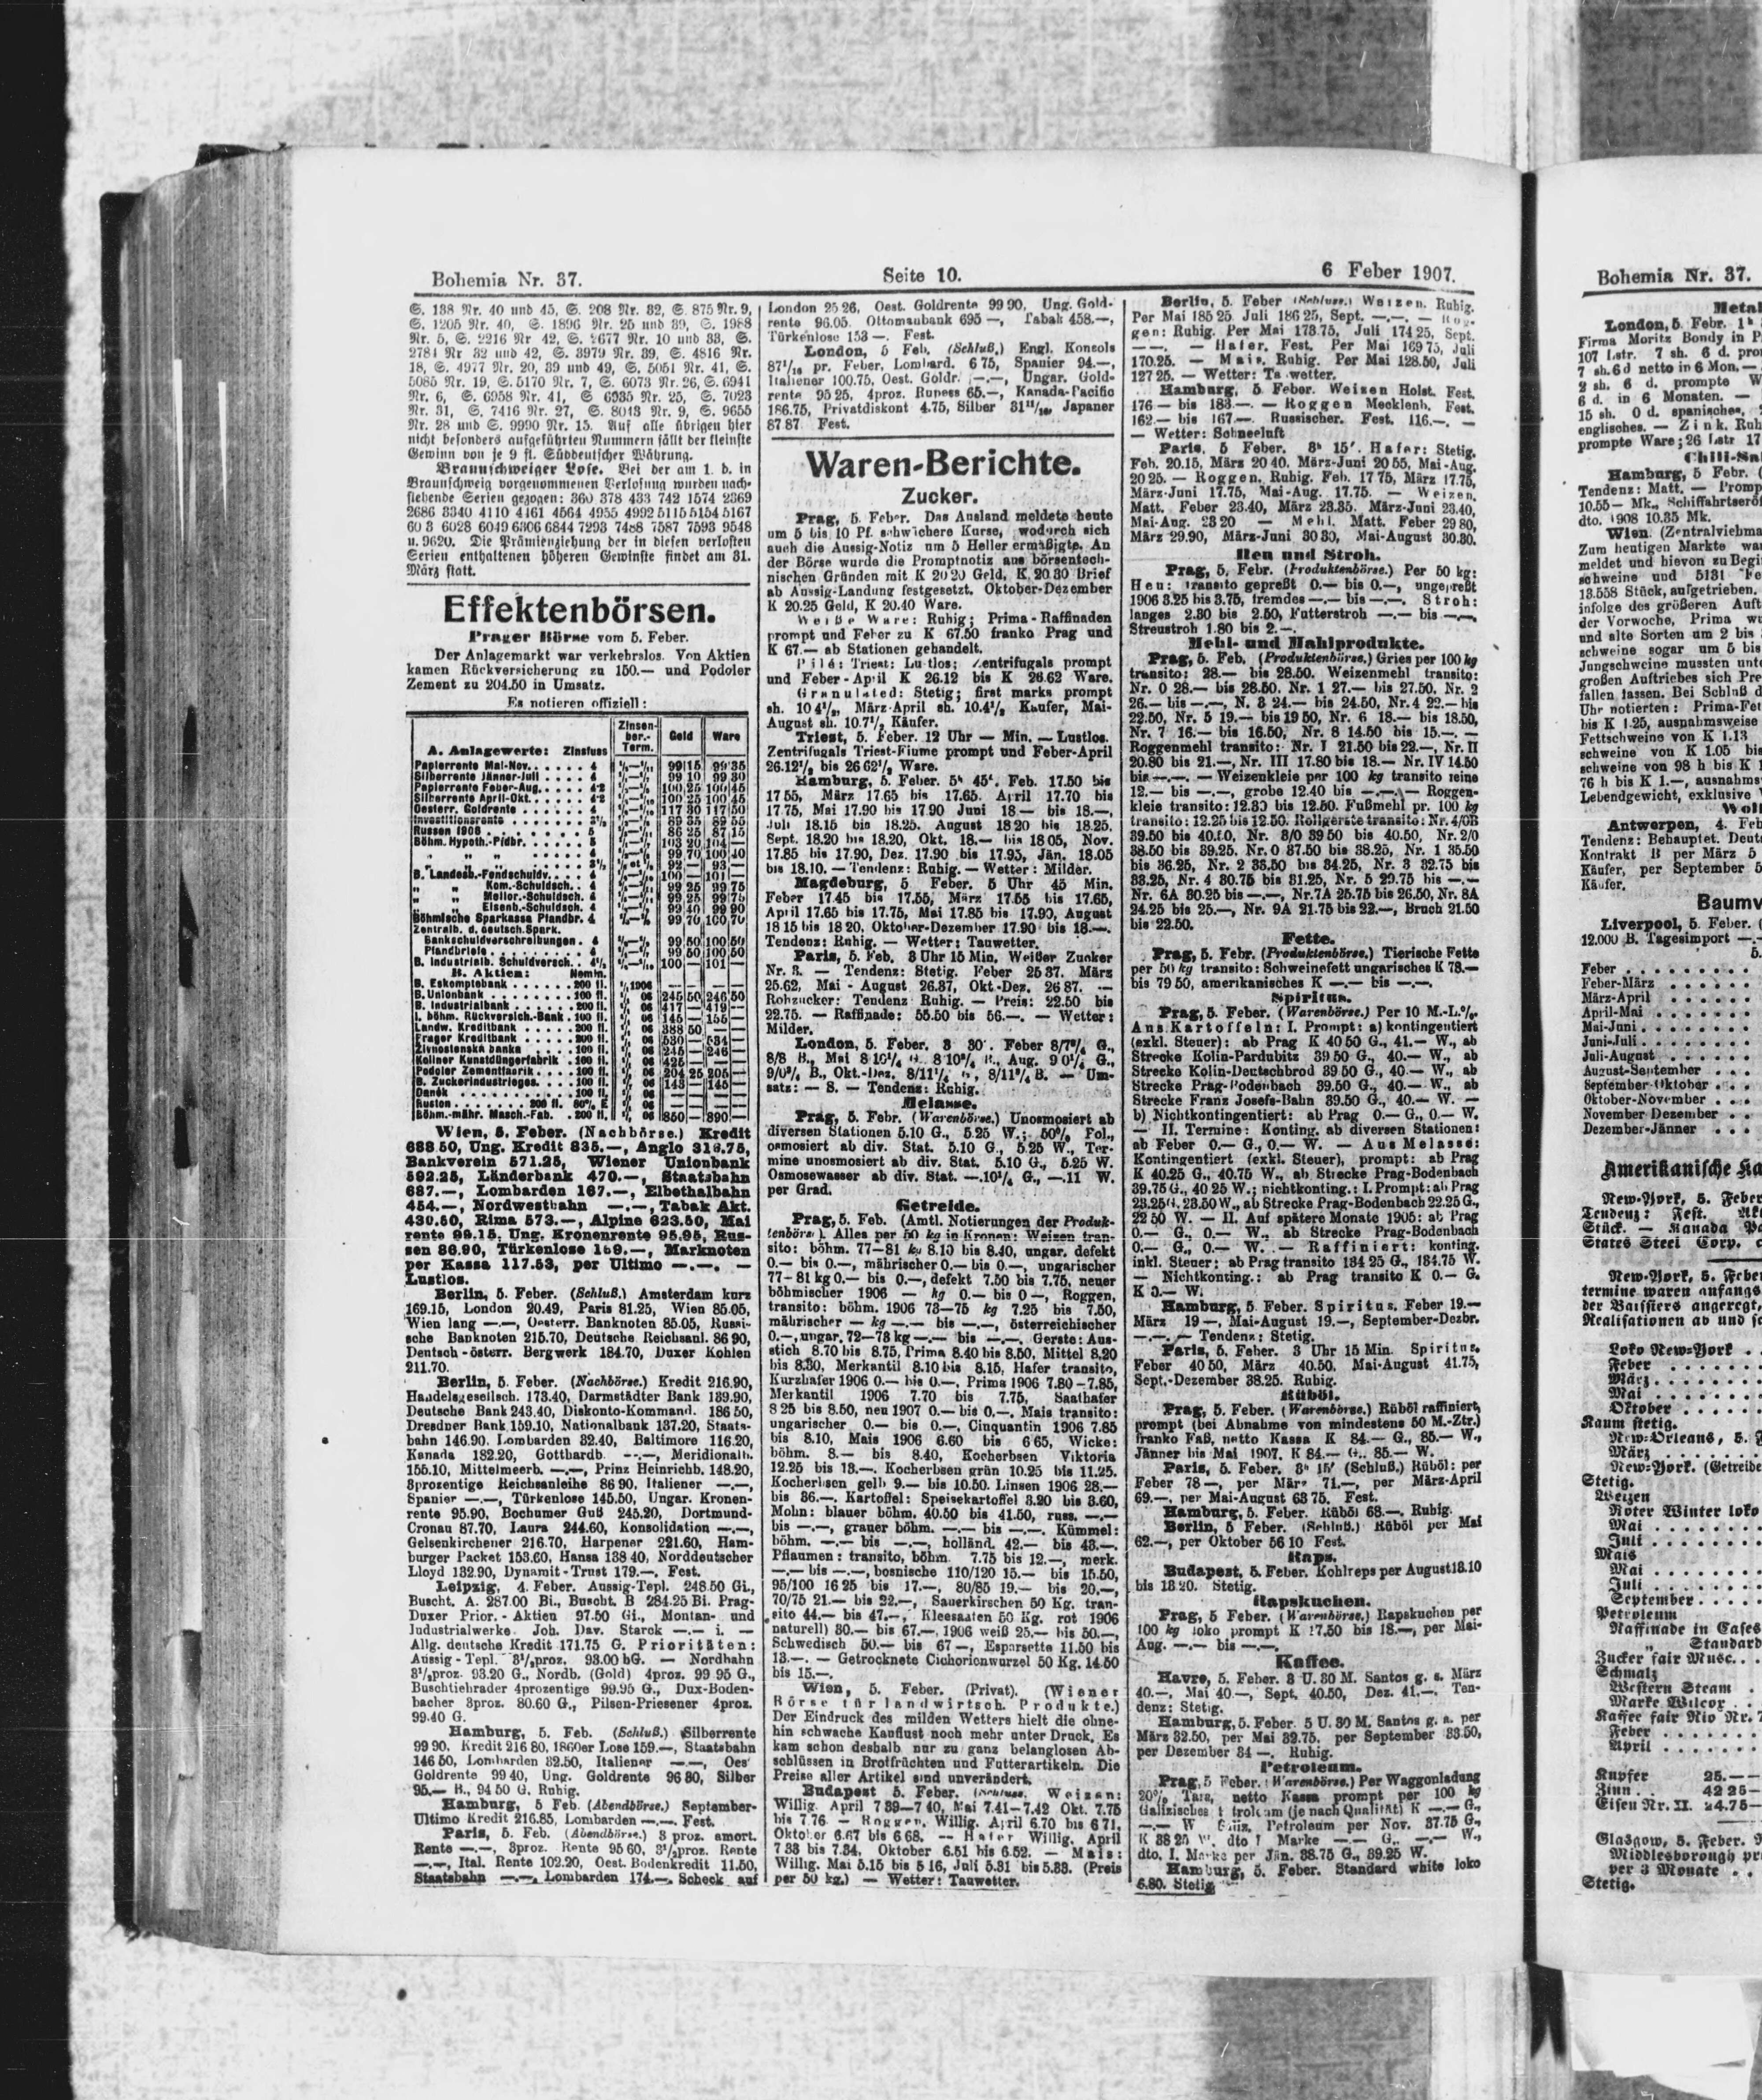 Bohemia Nr. 37.
Seite 10.
6 Feber 1907.
S. 138 Nr. 40 und 45, S. 208 Nr. 32, S. 875 Nr. 9,
S. 1205 Nr. 40, S. 1896 Nr. 25 und 39, S. 1988
Nr. 5, S. 2216 Nr 42, S. 2677 Nr. 10 und 33, S.
2781 Nr 32 und 42, S. 3979 Nr. 39, S. 4816 Nr.
18, S. 4977 Nr. 20, 39 und 49, S. 5051 Nr. 41, S.
5085 Nr. 19, S. 5170 Nr. 7, S. 6073 Nr. 26, S. 6941
Nr. 6, S. 6958 Nr. 41, S 6935 Nr. 25, S. 7023
Nr. 31, S. 7416 Nr. 27, S. 8043 Nr. 9, S. 9655
Nr. 28 und S. 9990 Nr. 15. Auf alle übrigen hier
nicht besonders aufgeführten Nummern fällt der kleinste
Gewinn von je 9 fl. Süddeutscher Währung.
Braunschweiger Lose. Bei der am 1. d. in
Braunschweig vorgenommenen Verlosung wurden nach-
stehende Serien gezogen: 360 378 433 742 1574 2369
2686 3340 4110 4161 4564 4955 4992 5115 5154 5167
6028 6049 6306 6844 7293 7587 7593 9548
u. 9620. Die Prämienziehung der in diesen verlosten
Serien enthaltenen höheren Gewinste findet am 31.
März statt.
Effektenbörsen.
Prager Börse vom 5. Feber.
Der Anlagemarkt war verkehrslos. Von Aktien
kamen Rückversicherung zu 150.— und Podoler
Zement zu 204.50 in Umsatz.
Es notieren offiziell:
A. Anlagewerte: Zinsfuss Zinsen-ber.-Term. Geld Ware
Papierrente Mai-Nov. 4 99 15 99 35
Silberrente Jänner-Juli 4 99 10 99 30
Papierrente Feber-Aug. 4·2 100 25 100 45
Silberrente April-Okt. 4·2 100 25 100 45
Oesterr. Goldrente 4 117 30 117 50
Investitionsrente 3½ 89 35 89 55
Russen 1906 5 86 25 87 15
Böhm. Hypoth.-Pfdbr. 5 103 20 104 —
" " " 4 99 70 100 40
" " " 3½ 92 — 93 —
B. Landesb.-Fondschuldv. 4 100 — 101 —
" " Kom.-Schuldsch. 4 99 25 99 75
" " Melior.-Schuldsch. 4 99 25 99 75
" " Eisenb.-Schuldsch. 4 99 40 99 90
Böhmische Sparkassa Pfandbr. 4 99 70 100 70
Zentralb. d. deutsch. Spark.
Bankschuldverschreibungen 4 99 50 100 50
Pfandbriefe 4 99 50 100 50
B. Industrialb. Schuldversch. 4½ 100 — 101 —
B. Aktien: Nomin.
B. Eskomptebank 200 fl. 1906 — —
B. Unionbank 100 fl. 06 245 50 246 50
B. Industrialbank 200 fl. 06 417 — 419 —
I. böhm. Rückversich.-Bank 100 fl. 06 145 — 155 —
Landw. Kreditbank 200 fl. 06 388 50 —
Prager Kreditbank 200 fl. 06 530 — 534 —
Živnostenská banka 100 fl. 06 245 — 246 —
Koliner Kunstdüngerfabrik 100 fl. 06 425 —
Podoler Zementfabrik 100 fl. 06 204 25 205 —
B. Zuckerindustrieges. 100 fl. 06 143 — 145 —
Daněk 100 fl. — —
Ruston 200 fl. 80% E 06 — —
Böhm.-mähr. Masch.-Fab. 200 fl. 06 850 — 890 —
Wien, 5. Feber. (Nachbörse.) Kredit
688.50, Ung. Kredit 835.—, Anglo 316.75,
Bankverein 571.25, Wiener Unionbank
592.25, Länderbank 470.—, Staatsbahn
687.—, Lombarden 167.—, Elbethalbahn
454.—, Nordwestbahn —.—, Tabak Akt.
430.50, Rima 573.—, Alpine 623.50, Mai
rente 99.15, Ung. Kronenrente 95.95, Rus-
sen 86.90, Türkenlose 169.—, Marknoten
per Kassa 117.53, per Ultimo —.—. —
Lustlos.
Berlin, 5. Feber. (Schluß.) Amsterdam kurz
169.15, London 20.49, Paris 81.25, Wien 85.05,
Wien lang —.—, Oesterr. Banknoten 85.05, Russi-
sche Banknoten 215.70, Deutsche Reichsanl. 86 90,
Deutsch-österr. Bergwerk 184.70, Duxer Kohlen
211.70.
Berlin, 5. Feber. (Nachbörse.) Kredit 216.90,
Handelsgesellsch. 173.40, Darmstädter Bank 139.90,
Deutsche Bank 243.40, Diskonto-Kommand. 186 50,
Dresdner Bank 159.10, Nationalbank 137.20, Staats-
bahn 146.90. Lombarden 32.40, Baltimore 116.20,
Kanada 182.20, Gotthardb. —.—, Meridionalb.
155.10, Mittelmeerb. —.—, Prinz Heinrichb. 148.20,
3prozentige Reichsanleihe 86 90, Italiener —.—,
Spanier —.—, Türkenlose 145.50, Ungar. Kronen-
rente 95.90, Bochumer Guß 245.20, Dortmund-
Cronau 87.70, Laura 244.60, Konsolidation —.—,
Gelsenkirchener 216.70, Harpener 221.60, Ham-
burger Packet 153.60, Hansa 138 40, Norddeutscher
Lloyd 132.90, Dynamit-Trust 179.—. Fest.
Leipzig, 4. Feber. Aussig-Tepl. 248.50 Gi.,
Buscht. A. 287.00 Bi., Buscht. B 284.25 Bi. Prag-
Duxer Prior.-Aktien 97.50 Gi., Montan- und
Industrialwerke Joh. Dav. Starck —.— i. —
Allg. deutsche Kredit 171.75 G. Prioritäten:
Aussig-Tepl. 3½proz. 93.00 bG. — Nordbahn
3½proz. 93.20 G., Nordb. (Gold) 4proz. 99 95 G.,
Buschtiehrader 4prozentige 99.95 G., Dux-Boden-
bacher 3proz. 80.60 G., Pilsen-Priesener 4proz.
99.40 G.
Hamburg, 5. Feb. (Schluß.) Silberrente
99 90, Kredit 216 80, 1860er Lose 159.—, Staatsbahn
146 50, Lombarden 32.50, Italiener —.—, Oes
Goldrente 99 40, Ung. Goldrente 96 30, Silber
95.— B., 94 50 G. Ruhig.
Hamburg, 5 Feb. (Abendbörse.) September-
Ultimo Kredit 216.85, Lombarden —.—. Fest.
Paris, 5. Feb. (Abendbörse.) 3 proz. amort.
Rente —.—, 3proz. Rente 95 60, 3½proz. Rente
—.—, Ital. Rente 102.20, Oest. Bodenkredit 11.50,
Staatsbahn —.—, Lombarden 174.—, Scheck auf
London 25 26, Oest. Goldrente 99 90, Ung. Gold-
rente 96.05. Ottomanbank 695 —, Tabak 458.—,
Türkenlose 153 —. Fest.
London, 5 Feb. (Schluß.) Engl. Konsols
87 1/16 pr. Feber, Lombard. 6 75, Spanier 94.—,
Italiener 100.75, Oest. Goldr. —.—, Ungar. Gold-
rente 95 25, 4proz. Rupees 65.—, Kanada-Pacific
186.75, Privatdiskont 4.75, Silber 31 11/16, Japaner
87 87 Fest.
Waren-Berichte.
Zucker.
Prag, 5. Feber. Das Ausland meldete heute
um 5 bis 10 Pf. schwächere Kurse, wodurch sich
auch die Aussig-Notiz um 5 Heller ermäßigte. An
der Börse wurde die Promptnotiz aus börsentech-
nischen Gründen mit K 20 20 Geld, K. 20 30 Brief
ab Aussig-Landung festgesetzt. Oktober-Dezember
K 20.25 Geld, K 20.40 Ware.
Weiße Ware: Ruhig; Prima-Raffinaden
prompt und Feber zu K 67.50 franko Prag und
K 67.— ab Stationen gehandelt.
Pilé: Triest: Lustlos; Zentrifugals prompt
und Feber-April K 26.12 bis K 26.62 Ware.
Granulated: Stetig; first marks prompt
sh. 10 4½, März-April sh. 10.4½ Käufer, Mai-
August sh. 10.7½ Käufer.
Triest, 5. Feber. 12 Uhr — Min. — Lustlos.
Zentrifugals Triest-Fiume prompt und Feber-April
26.12½ bis 26 62½ Ware.
Hamburg, 5. Feber. 5ʰ 45'. Feb. 17.50 bis
17 55, März 17.65 bis 17.65. April 17.70 bis
17 75, Mai 17.90 bis 17.90 Juni 18— bis 18.—,
Juli 18.15 bis 18.25. August 18 20 bis 18.25.
Sept. 18.20 bis 18.20, Okt. 18.— bis 18 05, Nov.
17.85 bis 17.90, Dez. 17.90 bis 17.95, Jän. 18.05
bis 18.10. — Tendenz: Ruhig. — Wetter: Milder.
Magdeburg, 5 Feber. 5 Uhr 45 Min.
Feber 17.45 bis 17.55, März 17.55 bis 17.65,
April 17.65 bis 17.75, Mai 17.85 bis 17.90, August
18 15 bis 18 20, Oktober-Dezember 17.90 bis 18.—.
Tendenz: Ruhig. — Wetter: Tauwetter.
Paris, 5. Feb. 3 Uhr 15 Min. Weißer Zucker
Nr. 3. — Tendenz: Stetig. Feber 25 37. März
25.62, Mai - August 26.37, Okt-Dez. 26 87. —
Rohzucker: Tendenz Ruhig. — Preis: 22.50 bis
22.75. — Raffinade: 55.50 bis 56.—. — Wetter:
Milder.
London, 5. Feber. 3 30'. Feber
satz: — S. — Tendenz: Ruhig.
Melasse.
Prag, 5. Febr. (Warenbörse.) Unosmosiert ab
diversen Stationen 5.10 G., 5.25 W.; 50% Pol.,
osmosiert ab div. Stat. 5.10 G., 5.25 W., Ter-
mine unosmosiert ab div. Stat. 5.10 G., 5.25 W.
Osmosewasser ab div. Stat. —.10¼ G., —.11 W.
per Grad.
Getreide.
Prag, 5. Feb. (Amtl. Notierungen der Produk-
tenbörse). Alles per 50 kg in Kronen: Weizen tran-
sito: böhm. 77—81 kg 8.10 bis 8.40, ungar. defekt
0.— bis 0.—, mährischer 0.— bis 0.—, ungarischer
77—81 kg 0.— bis 0.—, defekt 7.50 bis 7.75, neuer
böhmischer 1906 — kg 0.— bis 0—, Roggen,
transito: böhm. 1906 73—75 kg 7.25 bis 7.50,
mährischer — kg —.— bis —.—, österreichischer
0.—, ungar. 72—73 kg —.— bis —.—. Gerste: Aus-
stich 8.70 bis 8.75, Prima 8.40 bis 8.50, Mittel 8.20
bis 8.30, Merkantil 8.10 bis 8.15, Hafer transito,
Kurzhafer 1906 0.— bis 0.—, Prima 1906 7.80—7.85,
Merkantil 1906 7.70 bis 7.75, Saathafer
8 25 bis 8.50, neu 1907 0.— bis 0.—. Mais transito:
ungarischer 0.— bis 0.—, Cinquantin 1906 7.85
bis 8.10, Mais 1906 6.60 bis 6 65, Wicke:
böhm. 8.— bis 8.40, Kocherbsen Viktoria
12.25 bis 13.—. Kocherbsen grün 10.25 bis 11.25.
Kocherbsen gelb 9.— bis 10.50. Linsen 1906 28.—
bis 36.—. Kartoffel: Speisekartoffel 3.20 bis 3.60,
Mohn: blauer böhm. 40.50 bis 41.50, russ. —.—
bis —.—, grauer böhm. —.— bis —.—. Kümmel:
böhm. —.— bis —.—, holländ. 42.— bis 43.—.
Pflaumen: transito, böhm. 7.75 bis 12.—, merk.
—.— bis —.—, bosnische 110/120 15.— bis 15.50,
95/100 16 25 bis 17.—, 80/85 19.— bis 20.—,
70/75 21.— bis 22.—, Sauerkirschen 50 Kg. tran-
sito 44.— bis 47.—, Kleesaaten 50 Kg. rot 1906
naturell) 30.— bis 67.—, 1906 weiß 25.— bis 50.—,
Schwedisch 50.— bis 67—, Esparsette 11.50 bis
13.—. — Getrocknete Cichorienwurzel 50 Kg. 14.50
bis 15.—.
Wien, 5. Feber. (Privat). (Wiener
Börse für landwirtsch. Produkte.)
Der Eindruck des milden Wetters hielt die ohne-
hin schwache Kauflust noch mehr unter Druck. Es
kam schon deshalb nur zu ganz belanglosen Ab-
schlüssen in Brotfrüchten und Futterartikeln. Die
Preise aller Artikel sind unverändert.
Budapest 5. Feber. (Schluss. Weizen:
Willig. April 7 39—7 40, Mai 7.41—7.42 Okt. 7.75
bis 7.76 — Roggen. Willig. April 6.70 bis 6 71,
Oktober 6.67 bis 6 68. — Hafer Willig. April
7 33 bis 7.34, Oktober 6.51 bis 6.52. — Mais:
Willig. Mai 5.15 bis 5 16, Juli 5.31 bis 5.33. (Preis
per 50 kg.) — Wetter: Tauwetter.
Berlin, 5. Feber (Schluss.) Weizen. Ruhig.
Per Mai 185 25. Juli 186 25, Sept. —.—. — Rog-
gen: Ruhig. Per Mai 173.75, Juli 174 25, Sept.
—.—. — Hafer. Fest. Per Mai 169 75, Juli
170.25. — Mais. Ruhig. Per Mai 128.50, Juli
127 25. — Wetter: Tauwetter.
Hamburg, 5. Feber. Weizen Holst. Fest.
176 — bis 183.—. — Roggen Mecklenb. Fest.
162.— bis 167.—. Russischer. Fest. 116.—. —
— Wetter: Schneeluft
Paris, 5 Feber. 3ʰ 15'. Hafer: Stetig.
Feb. 20.15, März 20 40. März-Juni 20 55, Mai-Aug.
20 25. — Roggen. Ruhig. Feb. 17 75, März 17.75,
März-Juni 17.75, Mai-Aug. 17.75. — Weizen.
Matt. Feber 23.40, März 23.35. März-Juni 23.40,
Mai-Aug. 23 20 — Mehl. Matt. Feber 29 80,
März 29.90, März-Juni 30 30, Mai-August 30.30.
Heu und Stroh.
Prag, 5. Febr. (Produktenbörse.) Per 50 kg:
Heu: transito gepreßt 0.— bis 0.—, ungepreßt
1906 3.25 bis 3.75, fremdes —.— bis —.—. Stroh:
langes 2.30 bis 2.50, Futterstroh —.— bis —.—,
Streustroh 1.80 bis 2.—.
Mehl- und Mahlprodukte.
Prag, 5. Feb. (Produktenbörse.) Gries per 100 kg
transito: 28.— bis 28.50. Weizenmehl transito:
Nr. 0 28.— bis 28.50. Nr. 1 27.— bis 27.50. Nr. 2
26.— bis —.—, N. 3 24.— bis 24.50, Nr. 4 22.— bis
22.50, Nr. 5 19.— bis 19 50, Nr. 6 18.— bis 18.50,
Nr. 7 16.— bis 16.50, Nr. 8 14.50 bis 15.—. —
Roggenmehl transito: Nr. I 21.50 bis 22.—, Nr. II
20.80 bis 21.—, Nr. III 17.80 bis 18.— Nr. IV 14.50
bis —.—. — Weizenkleie per 100 kg transito reine
12.— bis —.—, grobe 12.40 bis —.— — Roggen-
kleie transito: 12.30 bis 12.50. Fußmehl pr. 100 kg
transito: 12.25 bis 12.50. Rollgerste transito: Nr. 4/0B
39.50 bis 40.50, Nr. 3/0 39 50 bis 40.50, Nr. 2/0
38.50 bis 39.25. Nr. 0 37.50 bis 38.25, Nr. 1 35.50
bis 36.25, Nr. 2 33.50 bis 34.25, Nr. 3 32.75 bis
33.25, Nr. 4 30.75 bis 31.25, Nr. 5 29.75 bis —.—
Nr. 6A 30.25 bis —.—, Nr. 7A 25.75 bis 26.50, Nr. 8A
24.25 bis 25.—, Nr. 9A 21.75 bis 22.—, Bruch 21.50
bis 22.50.
Fette.
Prag, 5. Febr. (Produktenbörse.) Tierische Fette
per 50 kg transito: Schweinefett ungarisches K 78.—
bis 79 50, amerikanisches K —.— bis —.—.
Spiritus.
Prag, 5. Feber. (Warenbörse.) Per 10 M.-L.%.
Aus Kartoffeln: I. Prompt: a) kontingentiert
(exkl. Steuer): ab Prag K 40 50 G., 41.— W., ab
Strecke Kolin-Pardubitz 39 50 G., 40.— W., ab
Strecke Kolin-Deutschbrod 39 50 G., 40.— W., ab
Strecke Prag-Bodenbach 39.50 G., 40.— W., ab
Strecke Franz Josefs-Bahn 39.50 G., 40.— W. —
b) Nichtkontingentiert: ab Prag 0.— G., 0.— W.
— II. Termine: Konting. ab diversen Stationen:
ab Feber 0.— G., 0.— W. — Aus Melasse:
Kontingentiert (exkl. Steuer), prompt: ab Prag
K 40.25 G., 40.75 W., ab Strecke Prag-Bodenbach
39.75 G., 40 25 W.; nichtkonting.: I. Prompt: ab Prag
23.25 G., 23.50 W., ab Strecke Prag-Bodenbach 22.25 G.,
22 50 W. — II. Auf spätere Monate 1905: ab Prag
0.— G., 0.— W., ab Strecke Prag-Bodenbach
0.— G., 0.— W. — Raffiniert: konting.
inkl. Steuer: ab Prag transito 134 25 G., 134.75 W.
— Nichtkonting.: ab Prag transito K 0.— G.
K 0.— W.
Hamburg, 5. Feber. Spiritus. Feber 19.—
März 19—, Mai-August 19.—, September-Dezbr.
—.—. — Tendenz: Stetig.
Paris, 5. Feber. 3 Uhr 15 Min. Spiritus.
Feber 40 50, März 40.50. Mai-August 41.75,
Sept.-Dezember 38.25. Ruhig.
Rüböl.
Prag, 5. Feber. (Warenbörse.) Rüböl raffiniert,
prompt (bei Abnahme von mindestens 50 M.-Ztr.)
franko Faß, netto Kassa K 84.— G., 85.— W.,
Jänner bis Mai 1907, K 84.— G., 85.— W.
Paris, 5. Feber. 3ʰ 15' (Schluß.) Rüböl: per
Feber 78 —, per März 71.—, per März-April
69.—, per Mai-August 63 75. Fest.
Hamburg, 5. Feber. Rüböl 68.—. Ruhig.
Berlin, 5 Feber. (Schluß.) Rüböl per Mai
62.—, per Oktober 56 10 Fest.
Raps.
Budapest, 5. Feber. Kohlreps per August 13.10
bis 13 20. Stetig.
Rapskuchen.
Prag, 5 Feber. (Warenbörse.) Rapskuchen per
100 kg loko prompt K 17.50 bis 18.—, per Mai-
Aug. —.— bis —.—.
Kaffee.
Havre, 5. Feber. 3 U. 30 M. Santos g. s. März
40.—, Mai 40.—, Sept. 40.50, Dez. 41.—. Ten-
denz: Stetig.
Hamburg, 5. Feber. 5 U. 30 M. Santos g. a. per
März 32.50, per Mai 32.75. per September 33.50,
per Dezember 34 —. Ruhig.
Petroleum.
Prag, 5 Feber. (Warenbörse.) Per Waggonladung
20% Tara, netto Kassa prompt per 100 kg
Galizisches (je nach Qualität) K —.— G.,
—.— W Petroleum per Nov. 37.75 G.,
K 38 25 W. dto I Marke —.— G., —.— W.,
dto. I. Marke per Jän. 38.75 G., 39.25 W.
Hamburg, 5. Feber. Standard white loko
6.80. Stetig
Bohemia Nr. 37.
London, 5. Febr.
Firma Moritz Bondy in
107 Lstr. 7 sh. 6 d.
7 sh. 6d netto in 6 Mon. —
2 sh. 6 d. prompte
6 d. in 6 Monaten. —
15 sh. 0 d. spanisches,
englisches. — Zink.
prompte Ware; 26 Lstr
Hamburg, 5 Febr.
Tendenz: Matt. —
10.55— Mk.,
dto. 1908 10.35 Mk.
Wien.
Zum heutigen Markte
meldet und hievon
schweine und 5131
13.558 Stück, aufgetrieben.
infolge des größeren
der Vorwoche, Prima
und alte Sorten um 2 bis
schweine sogar um 5 bis
Jungschweine mussten
großen Auftriebes sich
fallen lassen. Bei Schluß
Uhr notierten:
bis K 1.25, ausnahmsweise
Fettschweine von K 1.13
schweine von K 1.05 bis
schweine von 98 h bis K
76 h bis K 1.—,
Lebendgewicht, exklusive
Antwerpen, 4.
Tendenz: Behauptet.
Kontrakt B per März 5
Käufer, per September
Käufer.
Liverpool, 5. Feber.
12.000 B. Tagesimport
Feber
Feber-März
März-April
April-Mai
Mai-Juni
Juni-Juli
Juli-August
August-September
September-Oktober
Oktober-November
November Dezember
Dezember-Jänner
Amerikanische
New-York, 5. Feber
Tendenz: Fest.
Stück. — Kanada
States Steel Corp.
New-York, 5. Feber
termine waren anfangs
der Baissiers angeregt,
Realisationen ab und
Loko New-York
Feber
März
Mai
Oktober
Kaum stetig.
New-Orleans, 5.
März
New-York. (Getreide
Stetig.
Weizen
Roter Winter loko
Mai
Juli
Mais
Mai
Juli
September
Petroleum
Raffinade in Cases
" Standard
Zucker fair Musc.
Schmalz
Western Steam
Marke Wilcox
Kaffee fair Rio Nr. 7
Feber
April
Kupfer 25.—
Zinn 42 25
Eisen Nr. II. 24.75
Glasgow, 5. Feber.
Middlesborough
per 3 Monate
Stetig.